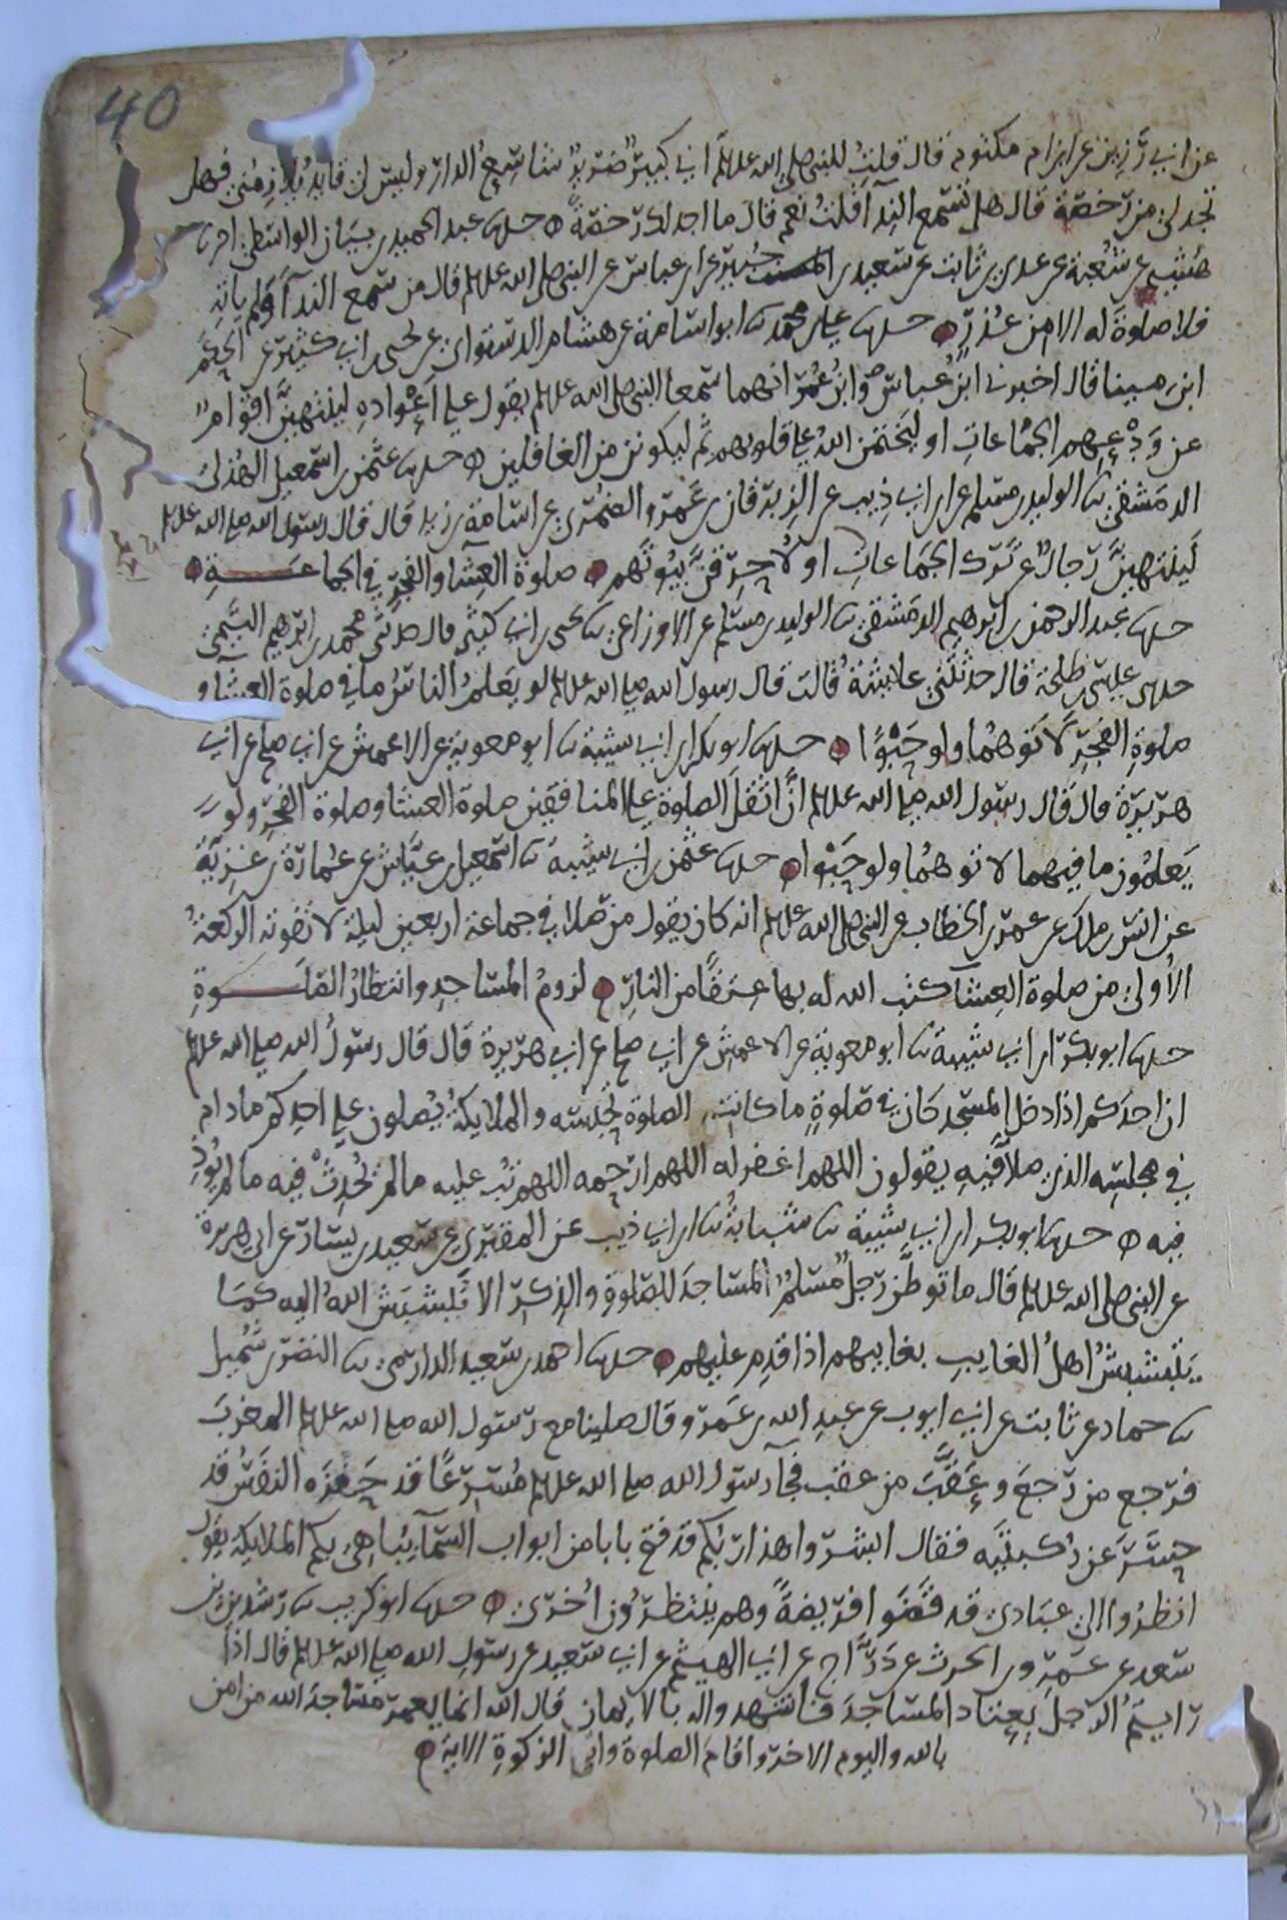 40
عن ابي رزين عن ابن ام مكتوم قال قلت للنبي صلى الله علىلم اني كبير ضرير شاسع الدار وليس لي قايد يلازمني فهل
تجد لي من رخصة قال هل تسمع الندآ قلت نعم قال ما اجد لك رخصة حدثنا عبد الحميد بن بيان الواسطي اخبرنا
هشيم عن شعبة عن عدي بن ثابت عن سعيد بن جبير عن ابن عباس عن النبي صلى الله علىلم قال من سمع الندآ فلم ياته
فلا صلوة له الا من عذر حدثنا علي بن محمد ثنا ابو اسامة عن هشام الدستوائي عن يحيى بن ابي كثير عن الحكم
ابن مينا قال اخبرني ابن عباس وابن عمر انهما سمعا النبي صلى الله علىلم يقول على اعواده لينتهين اقوام
عن ودعهم الجماعات او ليختمن الله على قلوبهم ثم ليكونن من الغافلين حدثنا عثمن بن اسمعيل الهذلي
الدمشقي ثنا الوليد بن مسلم عن ابن ابي ذيب عن الزبرقان بن عمرو الضمري عن اسامة بن زيد قال قال رسول الله صلى الله علىلم
لينتهين رجال عن ترك الجماعات او لاحرقن بيوتهم صلوة العشا والفجر في الجماعة
حدثنا عبد الرحمن بن ابرهيم الدمشقي ثنا الوليد بن مسلم عن الاوزاعي ثنا يحيى بن ابي كثير قال حدثني محمد بن ابرهيم التيمي
حدثني عيسى بن طلحة قال حدثتني عايشة قالت قال رسول الله صلى الله علىلم لو يعلم الناس ما في صلوة العشا و
صلوة الفجر لاتوهما ولو حبوا حدثنا ابو بكر ابن ابي شيبة ثنا ابو معوية عن الاعمش عن ابي صلح عن ابي
هريرة قال قال رسول الله صلى الله علىلم ان اثقل الصلوة على المنافقين صلوة العشا وصلوة الفجر ولو
يعلمون ما فيهما لاتوهما ولو حبوا حدثنا عثمن بن ابي شيبة ثنا اسمعيل بن عياش عن عمارة بن غزية
عن انس بن ملك عن عمر بن الخطاب عن النبي صلى الله علىلم انه كان يقول من صلا في جماعة اربعين ليلة لا تفوته الركعة
الاولى من صلوة العشآ كتب الله له بها عتقا من النار لزوم المساجد وانتظار الصلوة
حدثنا ابو بكر ابن ابي شيبة ثنا ابو معوية عن الاعمش عن ابي صلح عن ابي هريرة قال قال رسول الله صلى الله علىلم
ان احدكم اذا دخل المسجد كان في صلوة ما كانت الصلوة تحبسه والملايكة يصلون على احدكم ما دام
في مجلسه الذي صلا فيه يقولون اللهم اغفر له اللهم ارحمه اللهم تب عليه ما لم يحدث فيه ما لم يوذ
فيه حدثنا ابو بكر ابن ابي شيبة ثنا شبابة ثنا ابن ابي ذيب عن المقبري عن سعيد بن يسار عن ابي هريرة
عن النبي صلى الله علىلم قال ما توطن رجل مسلم المساجد للصلوة والذكر الا تبشبش الله اليه كما
يتبشبش اهل الغايب بغايبهم اذا قدم عليهم حدثنا احمد بن سعيد الدارمي ثنا النضر بن شميل
ثنا حماد عن ثابت عن ابي ايوب عن عبد الله بن عمرو قال صلينا مع رسول الله صلى الله علىلم المغرب
فرجع من رجع وعقب من عقب فجآ رسول الله صلى الله علىلم مسرعا قد حفزه النفس قد
حسر عن ركبتيه فقال ابشروا هذا ربكم قد فتح بابا من ابواب السمآ يباهي بكم الملايكة يقول
انظروا الى عبادي قد قضوا فريضة وهم ينتظرون اخرى حدثنا ابو كريب ثنا رشدين بن
سعد عن عمرو بن الحرث عن دراج عن ابي الهيثم عن ابي سعيد عن رسول الله صلى الله علىلم قال اذا
رايتم الرجل يعتاد المساجد فاشهدوا له بالايمان قال الله انما يعمر مساجد الله من امن
بالله واليوم الاخر واقام الصلوة واتى الزكوة الاية